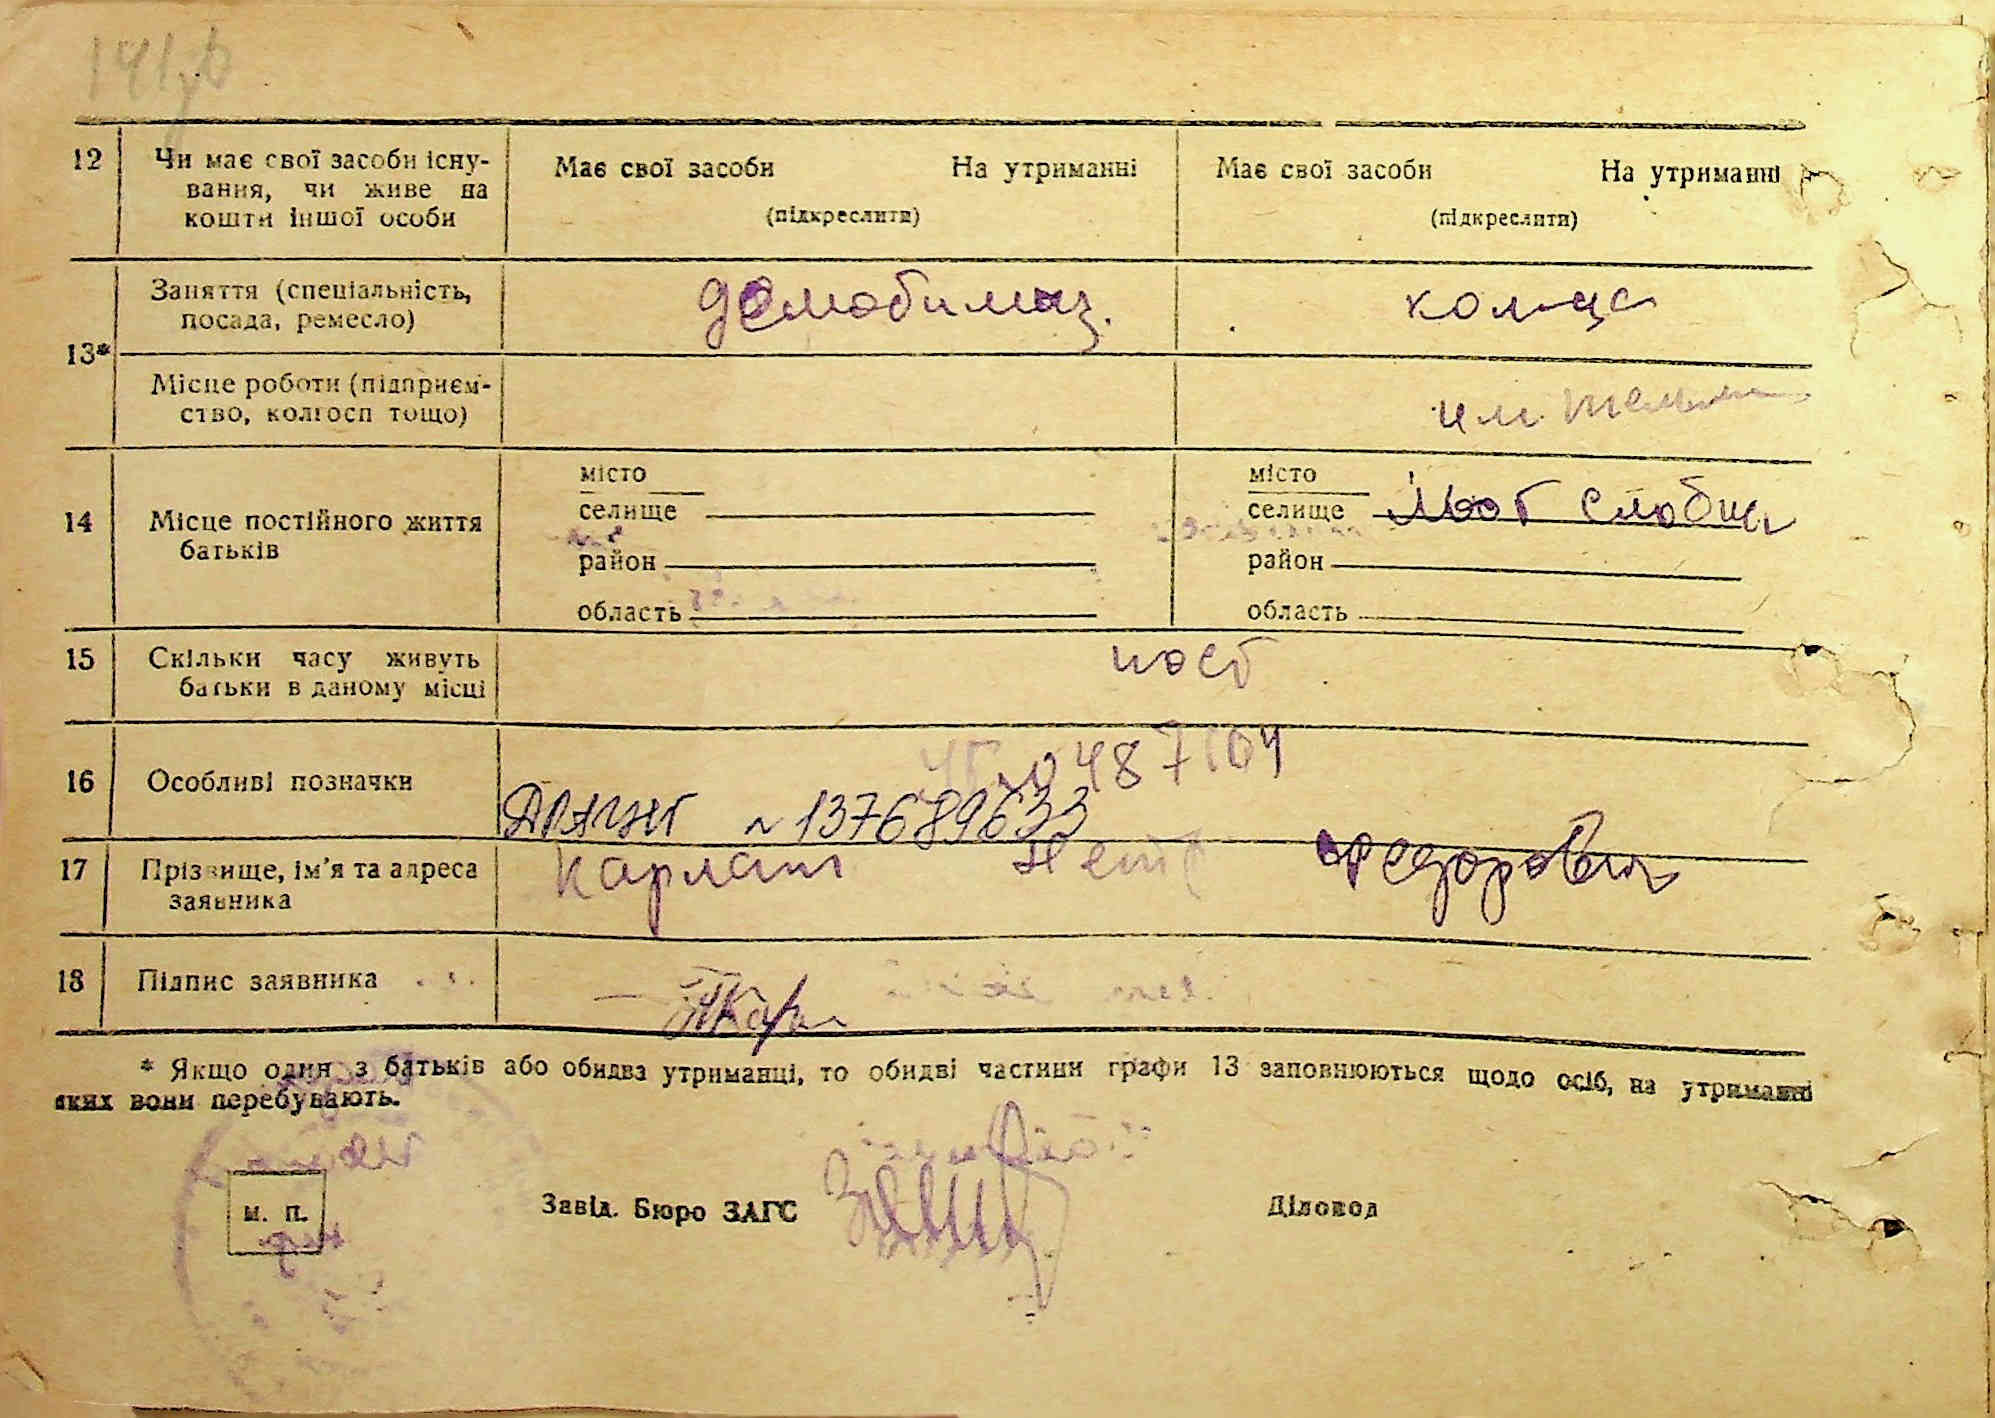 12 Чи має свої засоби існу-
вання, чи живе на
кошти іншої особи
Має свої засоби На утриманні
(підкреслити)
Має свої засоби На утриманні
(підкреслити)
13*
Заняття (спеціальність,
посада, ремесло)
демобилиз.
колхоз
Місце роботи (підприєм-
ство, колгосп тощо)
им.
14 Місце постійного життя
батьків
місто
селище
район
область
місто
селище
район
область
15 Скільки часу живуть
батьки в даному місці
пост
16 Особливі позначки
487104
~ 137689633
17 Прізвище, ім'я та адреса
заявника
Федорович
18 Підпис заявника
* Якщо один з батьків або обидва утриманці, то обидві частини графи 13 заповнюються щодо осіб, на утриманні
яких вони перебувають.
м. п.
Завід. Бюро ЗАГС
Діловод